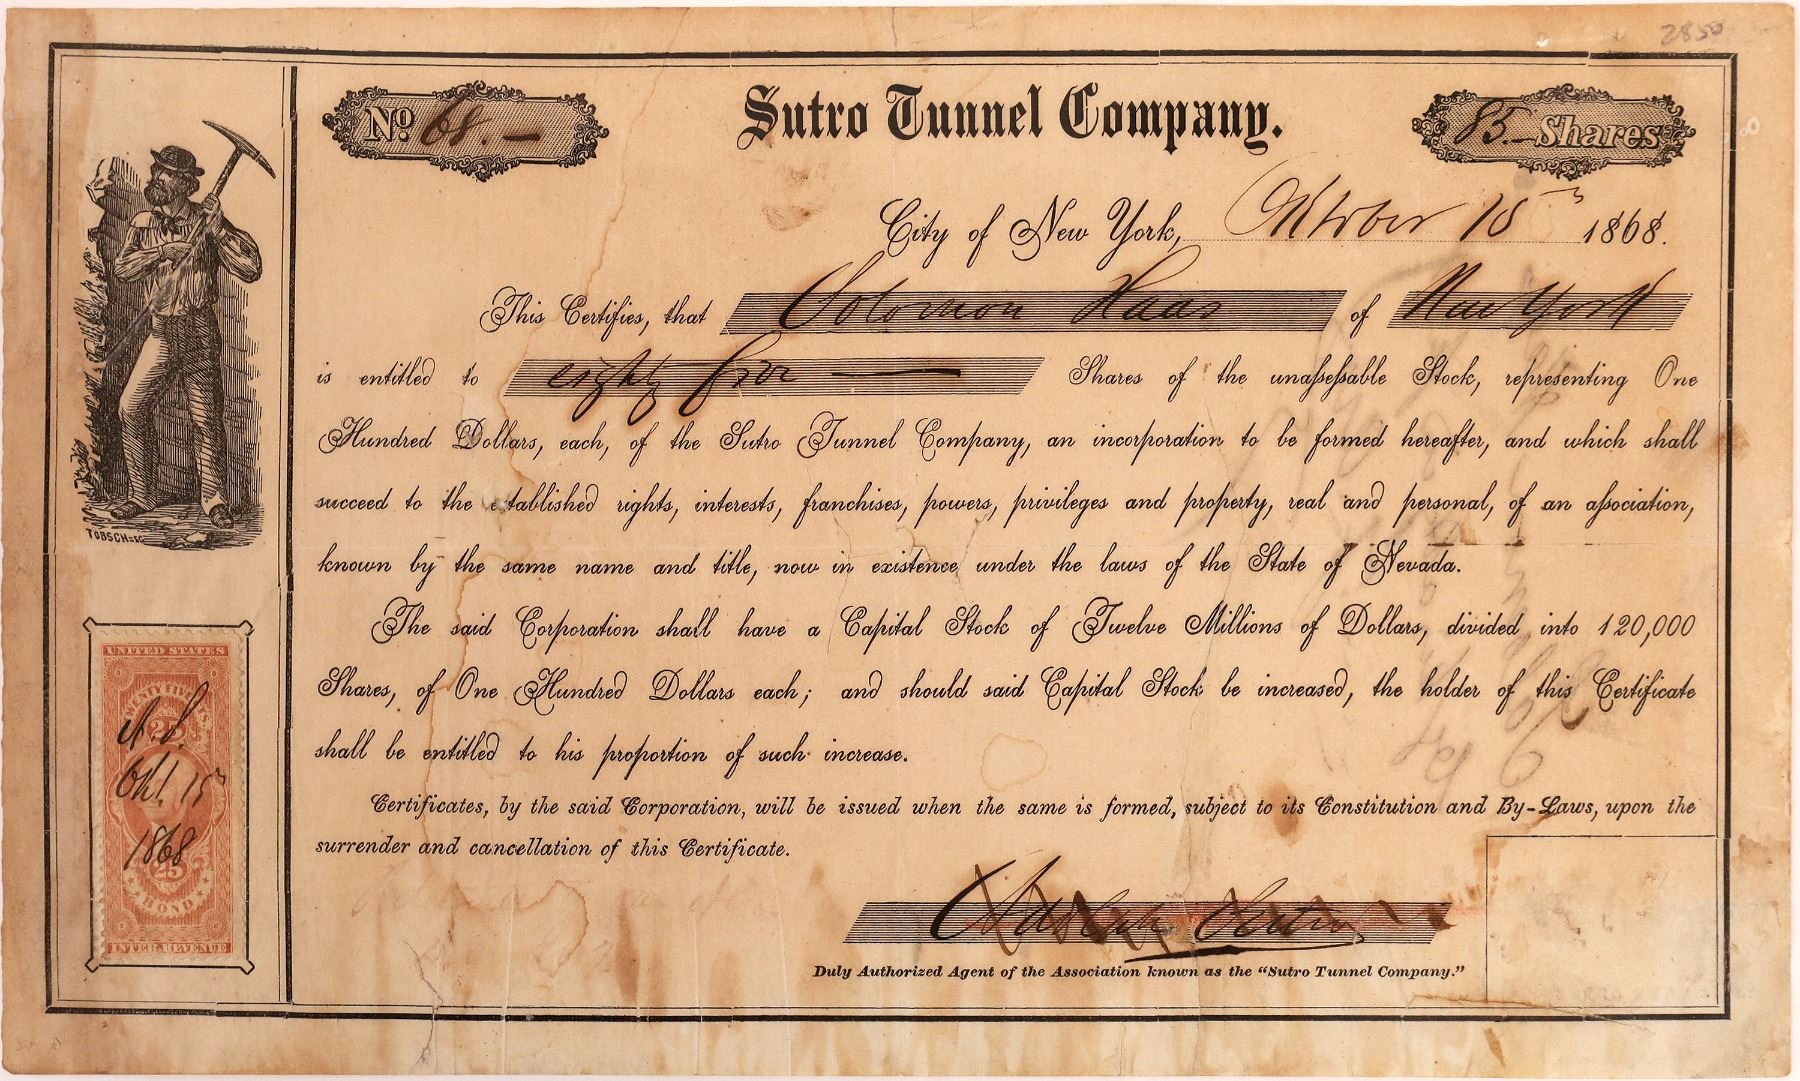 2850
No. 68.—
Sutro Tunnel Company.
85.— Shares
City of New York, October 15 1868.
This Certifies, that Solomon Haas of New York
is entitled to eighty five — Shares of the unassessable Stock, representing One
Hundred Dollars, each, of the Sutro Tunnel Company, an incorporation to be formed hereafter, and which shall
succeed to the established rights, interests, franchises, powers, privileges and property, real and personal, of an association,
known by the same name and title, now in existence under the laws of the State of Nevada.
The said Corporation shall have a Capital Stock of Twelve Millions of Dollars, divided into 120,000
Shares, of One Hundred Dollars each; and should said Capital Stock be increased, the holder of this Certificate
shall be entitled to his proportion of such increase.
Certificates, by the said Corporation, will be issued when the same is formed, subject to its Constitution and By-Laws, upon the
surrender and cancellation of this Certificate.
Adolph Sutro
Duly Authorized Agent of the Association known as the "Sutro Tunnel Company."
TOBSCH=SC
UNITED STATES
TWENTY FIVE CENTS
25
A.S.
Oct. 15
1868
25
BOND
INTER. REVENUE